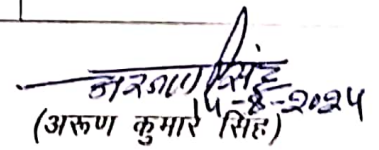 अरुण सिंह
14-8-2024
(अरूण कुमार सिंह)